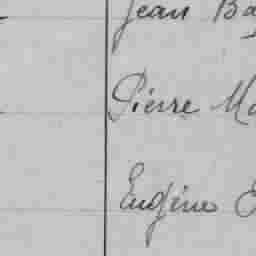 Jean Ba
Pierre Ma
Eugène E